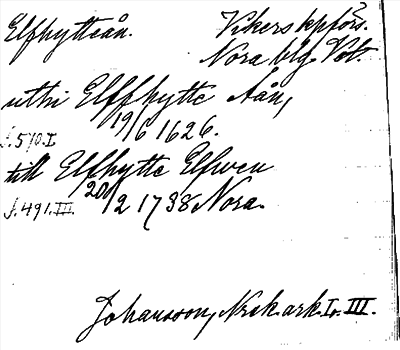 Elfhytteån. Vikers kpförs.
Nora blg. Vstl.
uthi Elffhytte Åån,
19/6 1626.
s. 510. I.
till Elfhytte Elfwen
20/2 1738 Nora.
s. 491. III.
Johansson, Nrsk. ark. I. III.